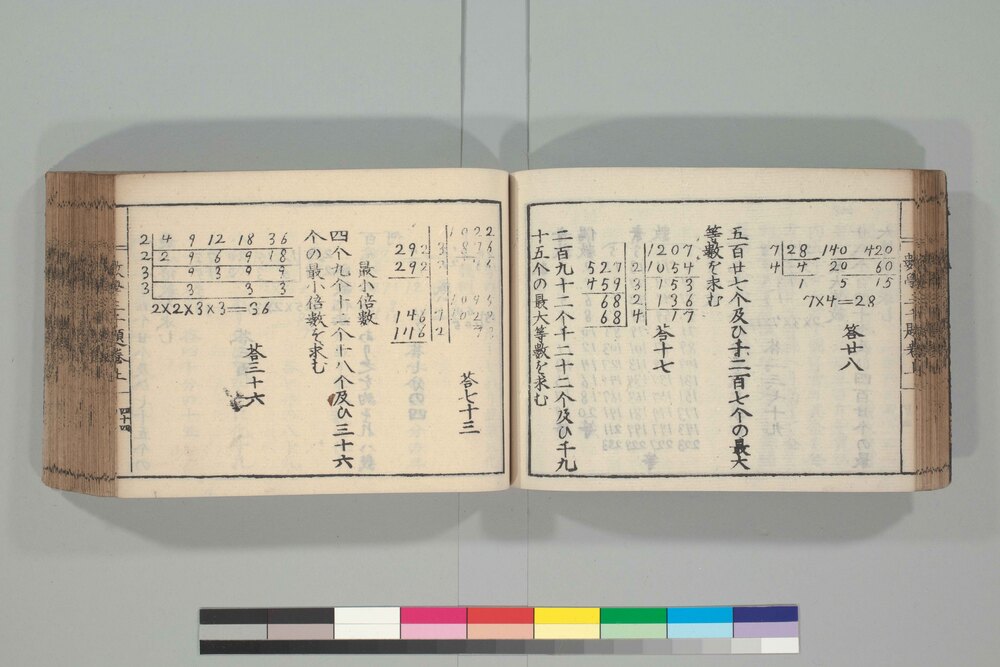 7 28 140 420
4 4 20 60
1 5 15
7×4=28
答廿八
五百廿七个及ひ千二百七个の最大
等數を求む
527 2 1207
459 2 1054
3 153
68 2 136
68 4 17
答十七
二百九十二个千二十二个及ひ千九
十五个の最大等數を求む
292
292
146
答七十三
最小倍數
四个九个十二个十八个及ひ三十六
个の最小倍數を求む
2 4 9 12 18 36
2 2 9 6 9 18
3 9 3 9 9
3 3 3 3
2×2×3×3=36
答三十六
四十四